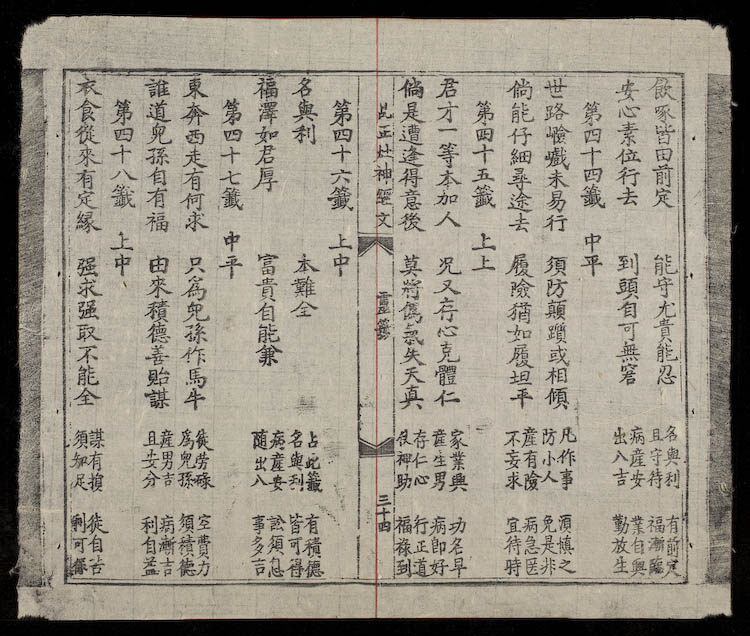 飲啄皆由前定　能守尤貴能忍　名與利　有前定
安心素位行去　到頭自可無窘　且守待　福漸臨
病產安　業自興
出入吉　勤放生
第四十四籤　中平
世路嶮巇未易行　須防顛躓或相傾　凡作事　須慎之
倘能仔細尋途去　履險猶如履坦平　防小人　免是非
產有險　病急医
不妄求　宜待時
第四十五籤　上上
君才一等本加人　况又存心克體仁　家業興　功名早
倘是遭逢得意後　莫將傌氣失天真　產生男　病即好
存仁心　行正道
役神助　福祿到
此正灶神經文　靈籤　三十四
第四十六籤　上中
名與利　本難全　占此籤　有積德
福澤如君厚　富貴自能兼　名與利　皆可得
病產安　訟須息
隨出入　事多吉
第四十七籤　中平
東奔西走有何求　只為兒孫作馬牛　徒劳碌　空費力
誰道兒孫自有福　由來積德善貽謀　為兒孫　須積德
產男吉　病漸吉
且安分　利自益
第四十八籤　上中
衣食從來有定緣　强求强取不能全　謀有損　徒自苦
須知足